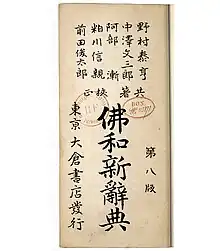 野村泰亨
中澤文三郎
阿部漸
共著
粕川信親
前田俊太郎
校正
第八版
佛和新辭典
東京大倉書店發行